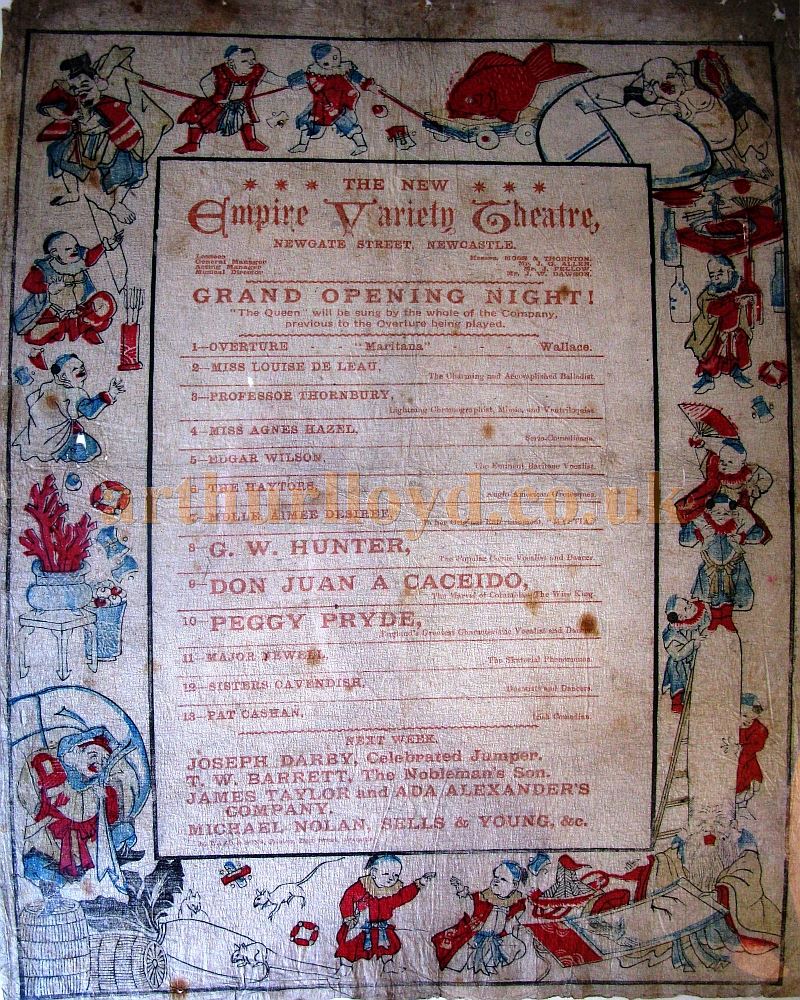 * * * THE NEW * * *
Empire Variety Theatre,
NEWGATE STREET, NEWCASTLE.
Lessees Messrs. MOSS & THORNTON.
General Manager Mr. J. G. ALLEN.
Acting Manager Mr. J. FELLOW.
Musical Director Mr. J. W. DAWSON.
GRAND OPENING NIGHT!
"The Queen" will be sung by the whole of the Company,
previous to the Overture being played.
1—OVERTURE - "Maritana" - - Wallace.
2—MISS LOUISE DE LEAU, The Charming and Accomplished Balladist.
3—PROFESSOR THORNBURY, Lightning Chromographist, Mimic, and Ventriloquist.
4—MISS AGNES HAZEL, Serio-Comedienne.
5—EDGAR WILSON, The Eminent Baritone Vocalist.
6—THE HAYTORS, Anglo-American Grotesques.
MDLLE AIMEE DESIREE, Original Entertainment,
8—G. W. HUNTER, The Popular Comic Vocalist and Dancer.
9—DON JUAN A CACEIDO, The Marvel of Colombia, The Wire King.
10—PEGGY PRYDE, England's Greatest Characteristic Vocalist and Dancer.
11—MAJOR NEWELL, The Skatorial Phenomenon.
12—SISTERS CAVENDISH, Duettists and Dancers.
13—PAT CASHAN, Irish Comedian.
NEXT WEEK,
JOSEPH DARBY, Celebrated Jumper.
T. W. BARRETT, The Nobleman's Son.
JAMES TAYLOR and ADA ALEXANDER'S
COMPANY.
MICHAEL NOLAN, SELLS & YOUNG, &c.
arthurlloyd.co.uk